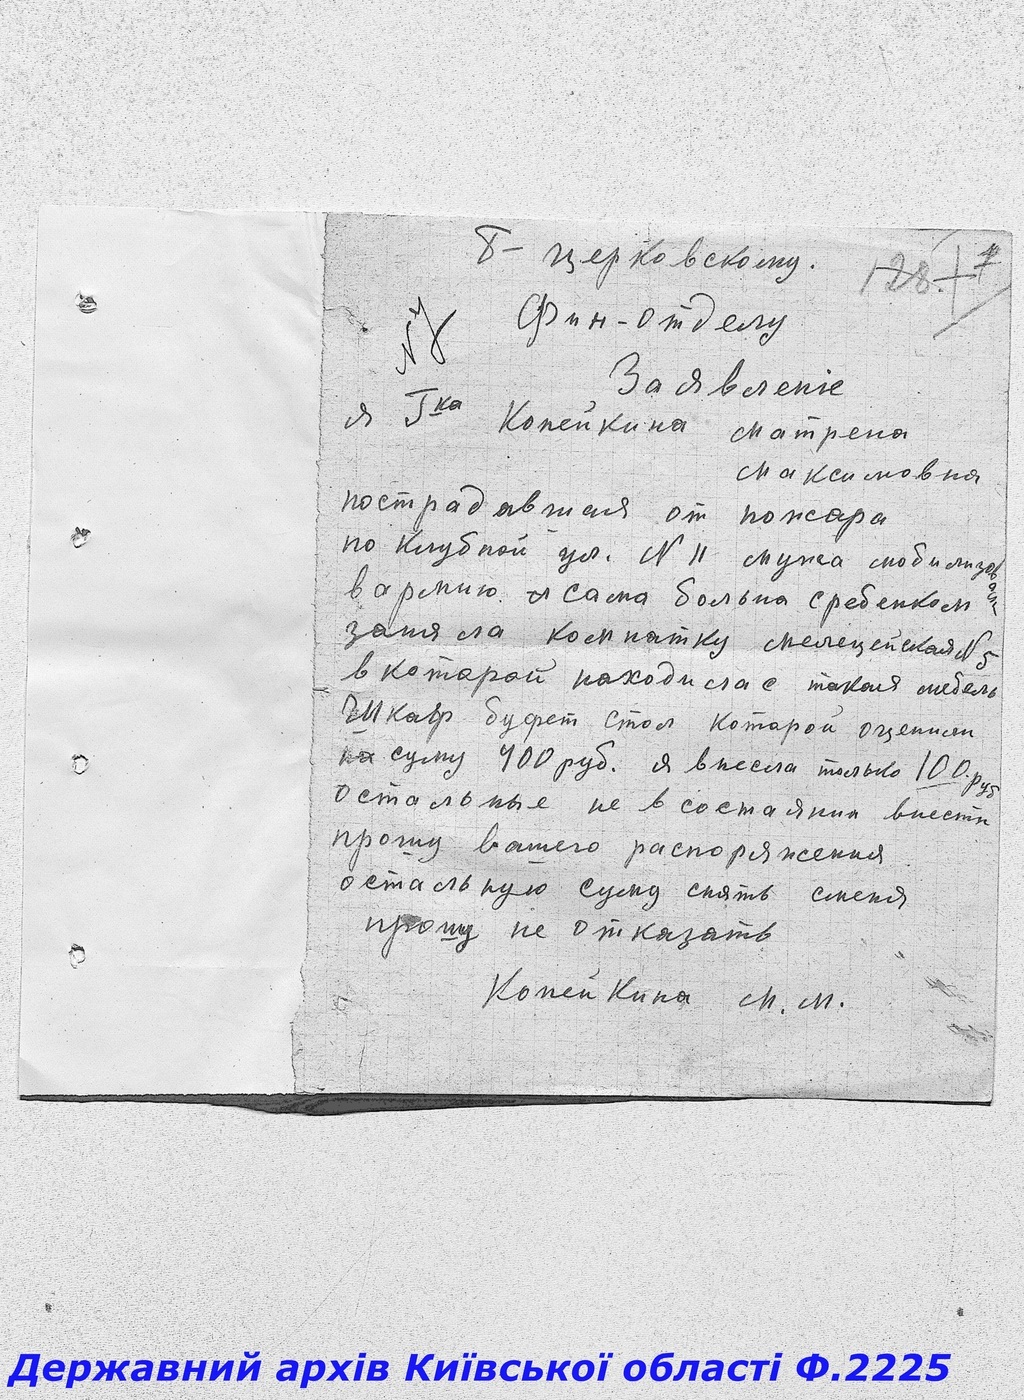 Б- церковскому.
128. 7
Фин-отделу
N 7
Заявленіе
я Гка Копейкина матрена
максимовна
пострадавшая от пожара
по клубной ул. N 11 мужа мобилизовали
в армию. я сама больна с ребенком
заняла комнатку мелецейская N 5
в которой находилас такая мебель
Шкаф буфет стол которой оценили
на суму 400 руб. я внесла только 100 руб
остальные не в состаянии внести
прошу вашего распоряжения
остальную суму снять сменя
прошу не отказать
Копейкина М. М.
Державний архів Київської області Ф.2225